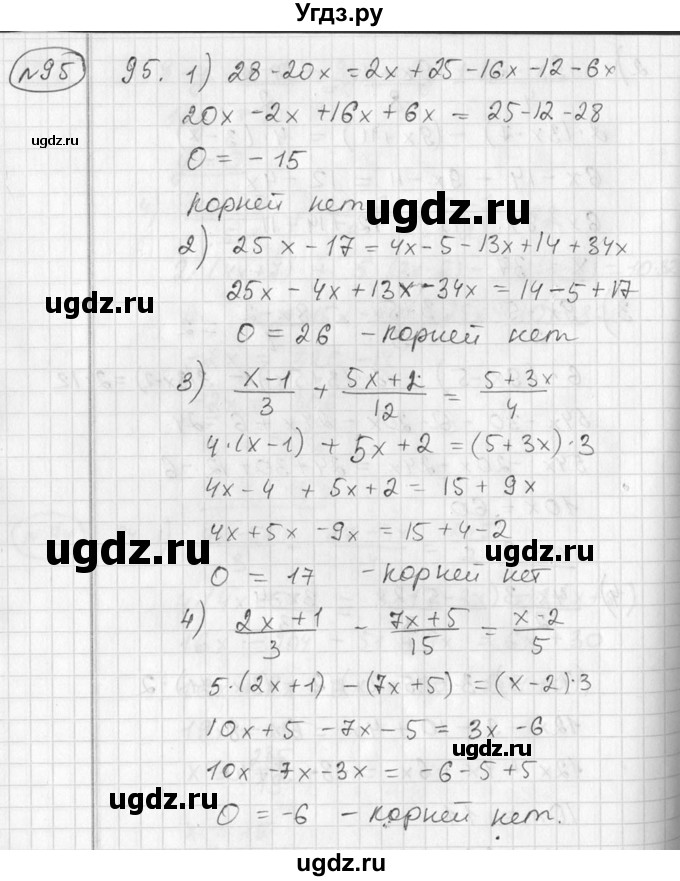 Угдз.ру
№95 95. 1) 28 - 20x = 2x + 25 - 16x - 12 - 6x
20x - 2x + 16x + 6x = 25 - 12 - 28
0 = - 15
корней нет
2) 25x - 17 = 4x - 5 - 13x + 14 + 34x
25x - 4x + 13x - 34x = 14 - 5 + 17
0 = 26 - корней нет
3) (x-1)/3 + (5x+2)/12 = (5+3x)/4
4·(x-1) + 5x + 2 = (5+3x)·3
4x - 4 + 5x + 2 = 15 + 9x
4x + 5x - 9x = 15 + 4 - 2
0 = 17 - корней нет
4) (2x+1)/3 - (7x+5)/15 = (x-2)/5
5·(2x+1) - (7x+5) = (x-2)·3
10x + 5 - 7x - 5 = 3x - 6
10x - 7x - 3x = -6 - 5 + 5
0 = -6 - корней нет.
ugdz.ru
ugdz.ru
ugdz.ru
ugdz.ru
ugdz.ru
ugdz.ru
ugdz.ru
ugdz.ru
ugdz.ru
ugdz.ru